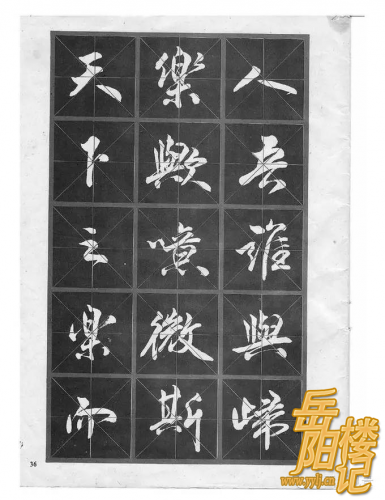 天下之樂而
樂歟噫微斯
人吾誰與歸
36
岳阳楼记
www.yylj.cn